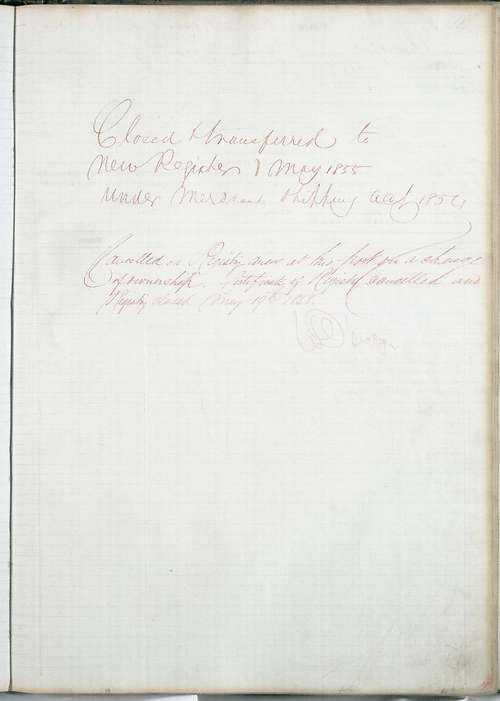 Closed & transferred to
new Register 1 May 1855
under Merchant Shipping Act 1854
Cancelled on Registry anew at this Port on a change
of ownership. Certificate of Registry cancelled and
Registry closed May 19th